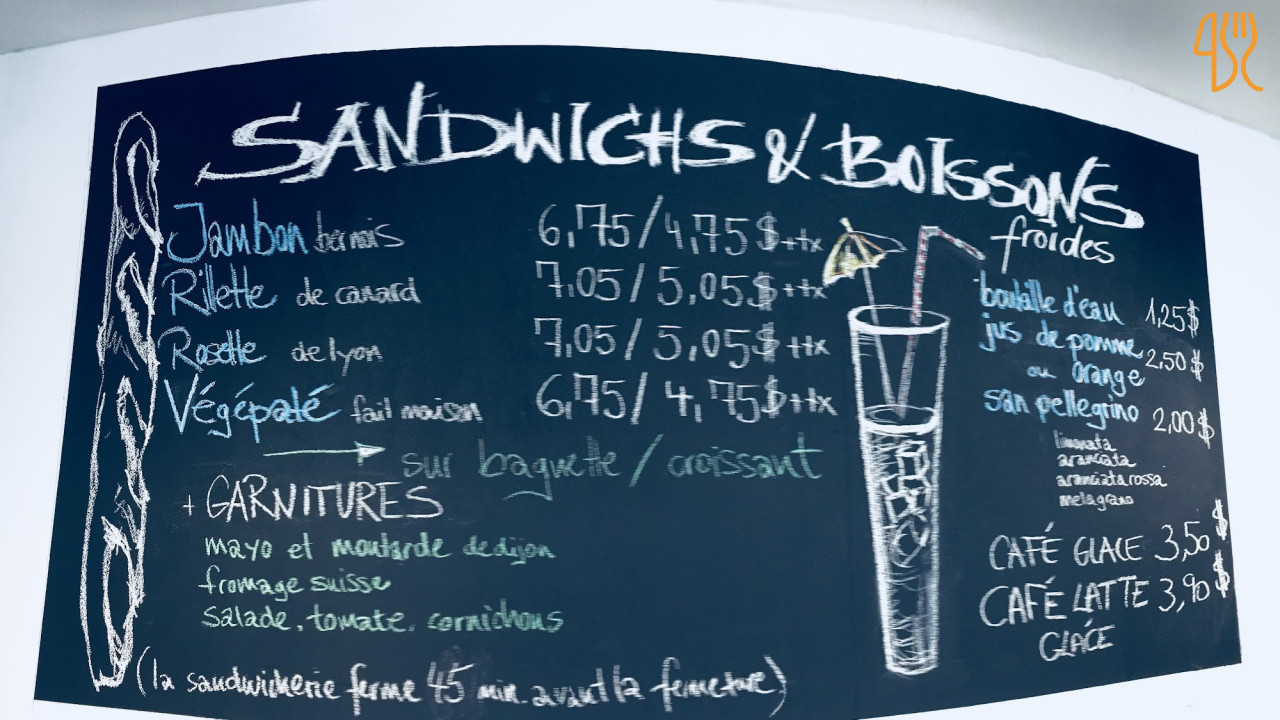 SANDWICHS & BOISSONS
froides
Jambon bernois 6,75/4,75$++tx
Rillette de canard 7,05/5,05$++tx
Rosette de lyon 7,05/5,05$++tx
Végépaté fait maison 6,75/4,75$++tx
→ sur baguette/croissant
+ GARNITURES
mayo et moutarde de dijon
fromage suisse
salade, tomate, cornichons
(la sandwicherie ferme 45 min. avant la fermeture)
bouteille d'eau 1,25$
jus de pomme
ou orange 2,50$
san pellegrino 2,00$
limonata
aranciata
aranciata rossa
melagrano
CAFÉ GLACE 3,50$
CAFÉ LATTE 3,90$
GLACE